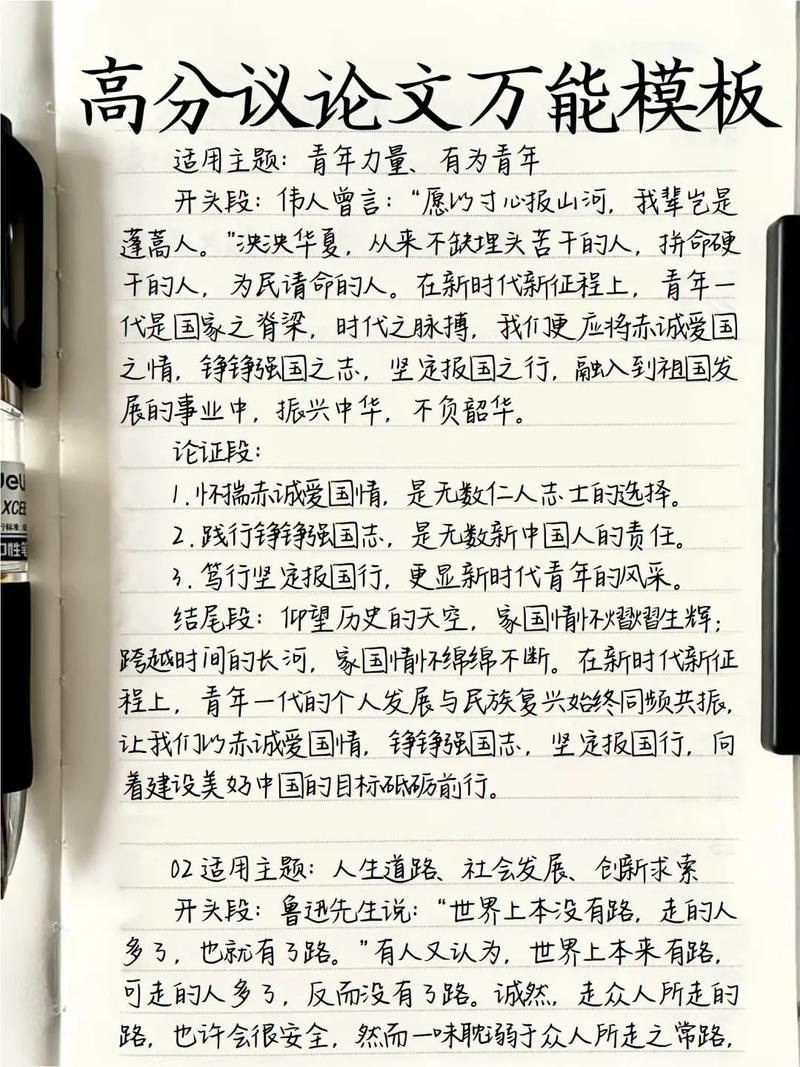 高分议论文万能模板
适用主题：青年力量、有为青年
开头段：伟人曾言：“愿以寸心报山河，我辈岂是
蓬蒿人。”泱泱华夏，从来不缺埋头苦干的人，拼命硬
干的人，为民请命的人。在新时代新征程上，青年一
代是国家之脊梁，时代之脉搏，我们更应将赤诚爱国
之情，铮铮强国之志，坚定报国之行，融入到祖国发
展的事业中，振兴中华，不负韶华。
论证段：
1.怀揣赤诚爱国情，是无数仁人志士的选择。
2.践行铮铮强国志，是无数新中国人的责任。
3.笃行坚定报国行，更显新时代青年的风采。
结尾段：仰望历史的天空，家国情怀熠熠生辉；
跨越时间的长河，家国情怀绵绵不断。在新时代新征
程上，青年一代的个人发展与民族复兴始终同频共振，
让我们以赤诚爱国情，铮铮强国志，坚定报国行，向
着建设美好中国的目标砥砺前行。
02适用主题：人生道路、社会发展、创新求索
开头段：鲁迅先生说：“世界上本没有路，走的人
多了，也就有了路。”有人又认为，世界上本来有路，
可走的人多了，反而没有了路。诚然，走众人所走的
路，也许会很安全，然而一味耽溺于众人所走之常路，
deli
XCEE